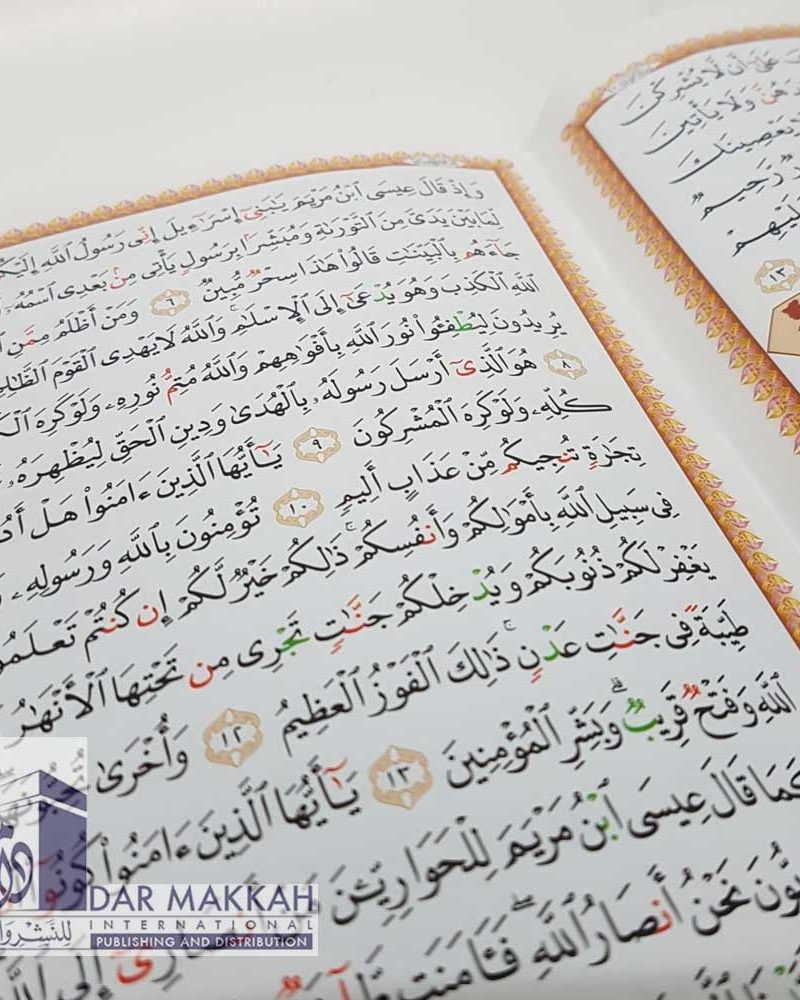 عَلَىٰٓ أَن لَّا يُشْرِكْنَ
وَلَا يَأْتِينَ
يَعْصِينَكَ
رَّحِيمٌ
١٣
وَإِذْ قَالَ عِيسَى ٱبْنُ مَرْيَمَ يَـٰبَنِىٓ إِسْرَٰٓءِيلَ إِنِّى رَسُولُ ٱللَّهِ
لِّمَا بَيْنَ يَدَىَّ مِنَ ٱلتَّوْرَىٰةِ وَمُبَشِّرًۢا بِرَسُولٍ يَأْتِى مِنۢ بَعْدِى ٱسْمُهُۥٓ
جَآءَهُم بِٱلْبَيِّنَـٰتِ قَالُوا۟ هَـٰذَا سِحْرٌ مُّبِينٌ ٦ وَمَنْ أَظْلَمُ مِمَّنِ
ٱللَّهِ ٱلْكَذِبَ وَهُوَ يُدْعَىٰٓ إِلَى ٱلْإِسْلَـٰمِ ۚ وَٱللَّهُ لَا يَهْدِى ٱلْقَوْمَ
يُرِيدُونَ لِيُطْفِـُٔوا۟ نُورَ ٱللَّهِ بِأَفْوَٰهِهِمْ وَٱللَّهُ مُتِمُّ نُورِهِۦ وَلَوْ كَرِهَ
٨ هُوَ ٱلَّذِىٓ أَرْسَلَ رَسُولَهُۥ بِٱلْهُدَىٰ وَدِينِ ٱلْحَقِّ لِيُظْهِرَهُۥ
كُلِّهِۦ وَلَوْ كَرِهَ ٱلْمُشْرِكُونَ ٩ يَـٰٓأَيُّهَا ٱلَّذِينَ ءَامَنُوا۟ هَلْ
تِجَـٰرَةٍ تُنجِيكُم مِّنْ عَذَابٍ أَلِيمٍ ١٠ تُؤْمِنُونَ بِٱللَّهِ وَرَسُولِهِۦ
فِى سَبِيلِ ٱللَّهِ بِأَمْوَٰلِكُمْ وَأَنفُسِكُمْ ۚ ذَٰلِكُمْ خَيْرٌ لَّكُمْ إِن كُنتُمْ
يَغْفِرْ لَكُمْ ذُنُوبَكُمْ وَيُدْخِلْكُمْ جَنَّـٰتٍ تَجْرِى مِن تَحْتِهَا ٱلْأَنْهَـٰرُ
طَيِّبَةً فِى جَنَّـٰتِ عَدْنٍ ۚ ذَٰلِكَ ٱلْفَوْزُ ٱلْعَظِيمُ ١٢ وَأُخْرَىٰ تُحِبُّونَهَا
ٱللَّهِ وَفَتْحٌ قَرِيبٌ ۗ وَبَشِّرِ ٱلْمُؤْمِنِينَ ١٣ يَـٰٓأَيُّهَا ٱلَّذِينَ ءَامَنُوا۟ كُونُوٓا۟
كَمَا قَالَ عِيسَى ٱبْنُ مَرْيَمَ لِلْحَوَارِيِّـۧنَ مَنْ أَنصَارِىٓ إِلَى ٱللَّهِ
نَحْنُ أَنصَارُ ٱللَّهِ ۖ فَـَٔامَنَت
DAR MAKKAH
INTERNATIONAL
PUBLISHING AND DISTRIBUTION
للنشر